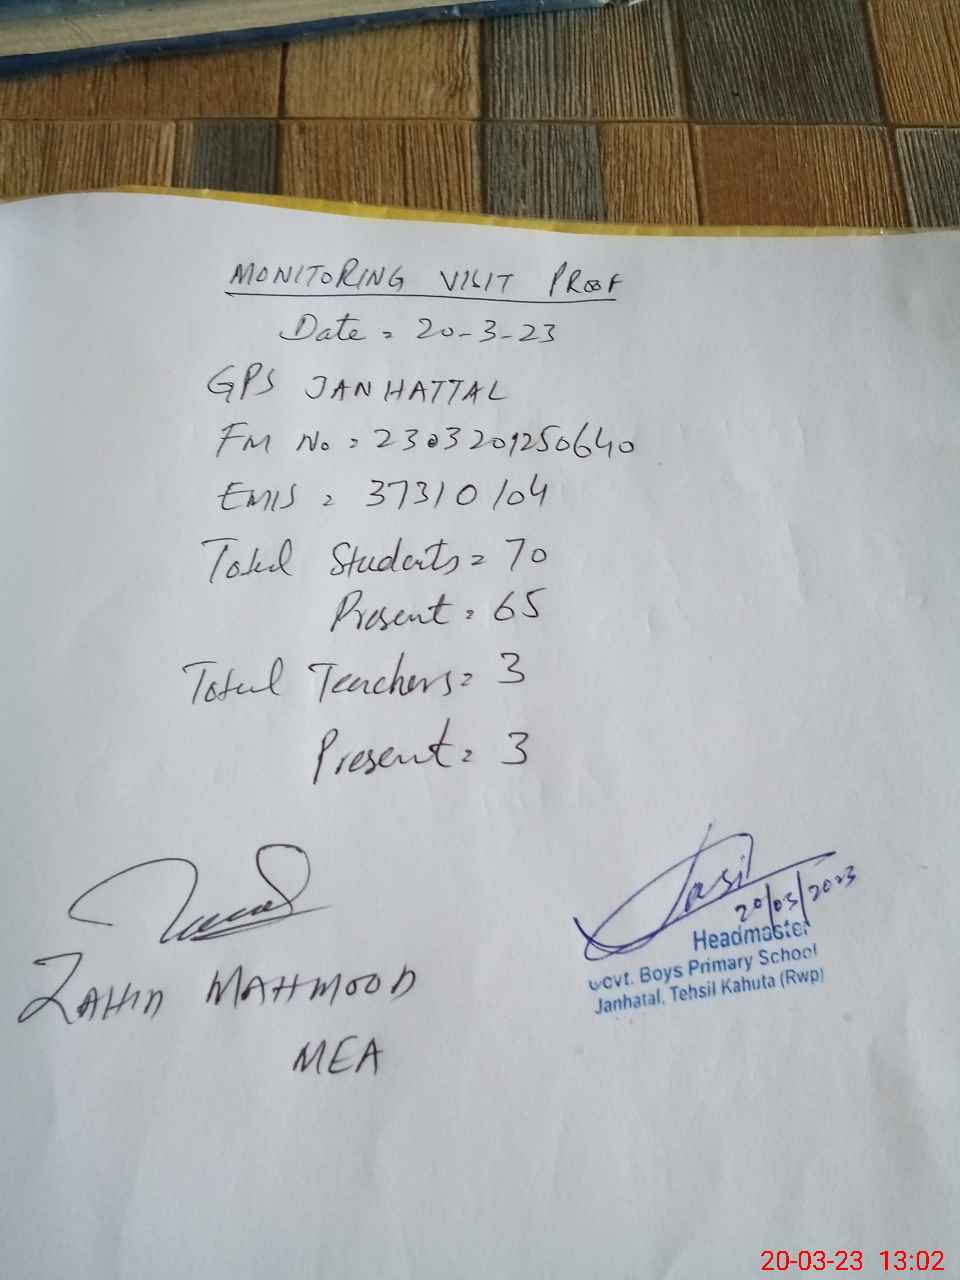 MONITORING VISIT PROOF
Date = 20-3-23
GPS JANHATTAL
FM No = 2303201250640
EMIS = 37310104
Total Students = 70
Present = 65
Total Teachers = 3
Present = 3
ZAHID MAHMOOD
MEA
20/03/2023
Headmaster
Govt. Boys Primary School
Janhatal, Tehsil Kahuta (Rwp)
20-03-23 13:02